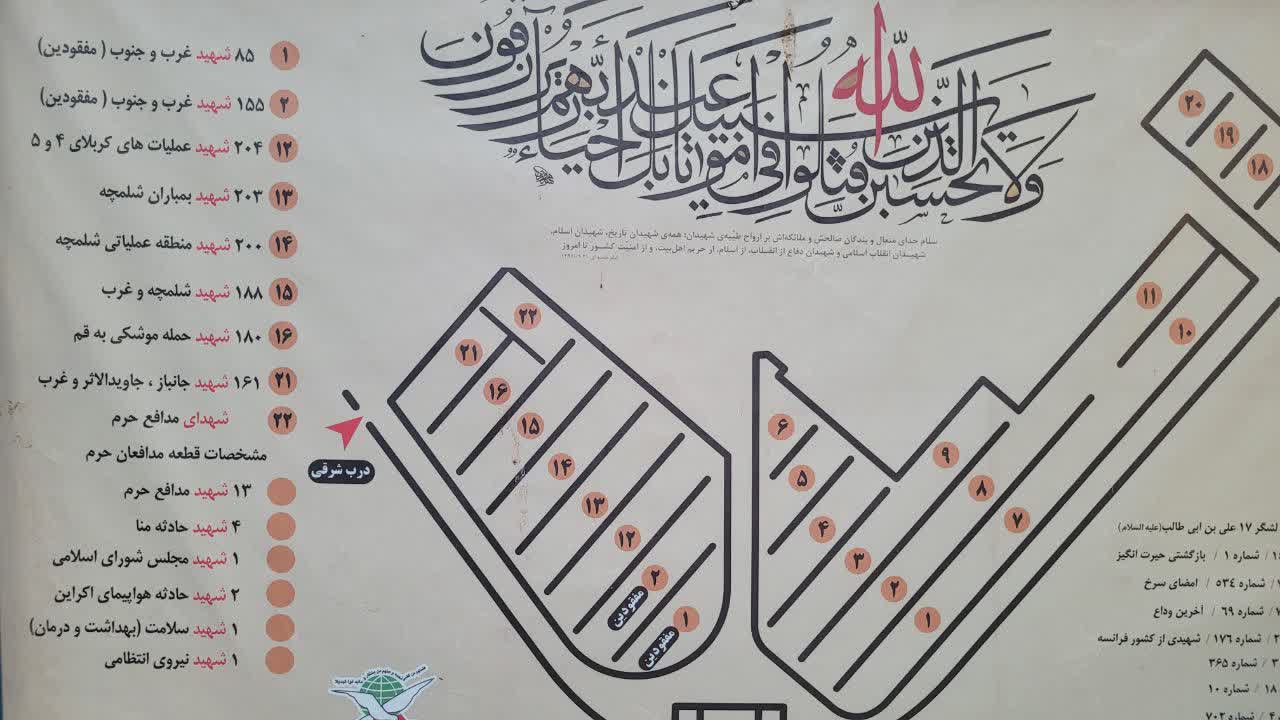 ولا تحسبن الذین قتلوا فی سبیل الله امواتا بل احیاء عند ربهم یرزقون
سلام خدای متعال و بندگان صالحش و ملائکه‌اش بر ارواح طیّبه‌ی شهیدان؛ همه‌ی شهیدان تاریخ، شهیدان اسلام،
شهیدان انقلاب اسلامی و شهیدان دفاع از انقلاب، از اسلام، از حریم اهل‌بیت، و از امنیت کشور تا امروز
۱ ۸۵ شهید غرب و جنوب ( مفقودین)
۲ ۱۵۵ شهید غرب و جنوب ( مفقودین)
۱۲ ۲۰۴ شهید عملیات های کربلای ۴ و ۵
۱۳ ۲۰۳ شهید بمباران شلمچه
۱۴ ۲۰۰ شهید منطقه عملیاتی شلمچه
۱۵ ۱۸۸ شهید شلمچه و غرب
۱۶ ۱۸۰ شهید حمله موشکی به قم
۲۱ ۱۶۱ شهید جانباز ، جاویدالاثر و غرب
۲۲ شهدای مدافع حرم
مشخصات قطعه مدافعان حرم
۱۳ شهید مدافع حرم
۴ شهید حادثه منا
۱ شهید مجلس شورای اسلامی
۲ شهید حادثه هواپیمای اکراین
۱ شهید سلامت (بهداشت و درمان)
۱ شهید نیروی انتظامی
درب شرقی
۲۲
۲۱
۱۶
۱۵
۱۴
۱۳
۱۲
۲
مفقودین
۱
مفقودین
۲۰
۱۹
۱۸
۱۱
۱۰
۶
۵
۴
۳
۲
۱
۹
۸
۷
لشگر ۱۷ علی بن ابی طالب(علیه السلام)
/ شماره ۱ / بازگشتی حیرت انگیز
/ شماره ۵۳۴ / امضای سرخ
/ شماره ۶۹ / آخرین وداع
/ شماره ۱۷۶ / شهیدی از کشور فرانسه
/ شماره ۳۶۵
۱۸ / شماره ۱۰
/ شماره ۷۰۲